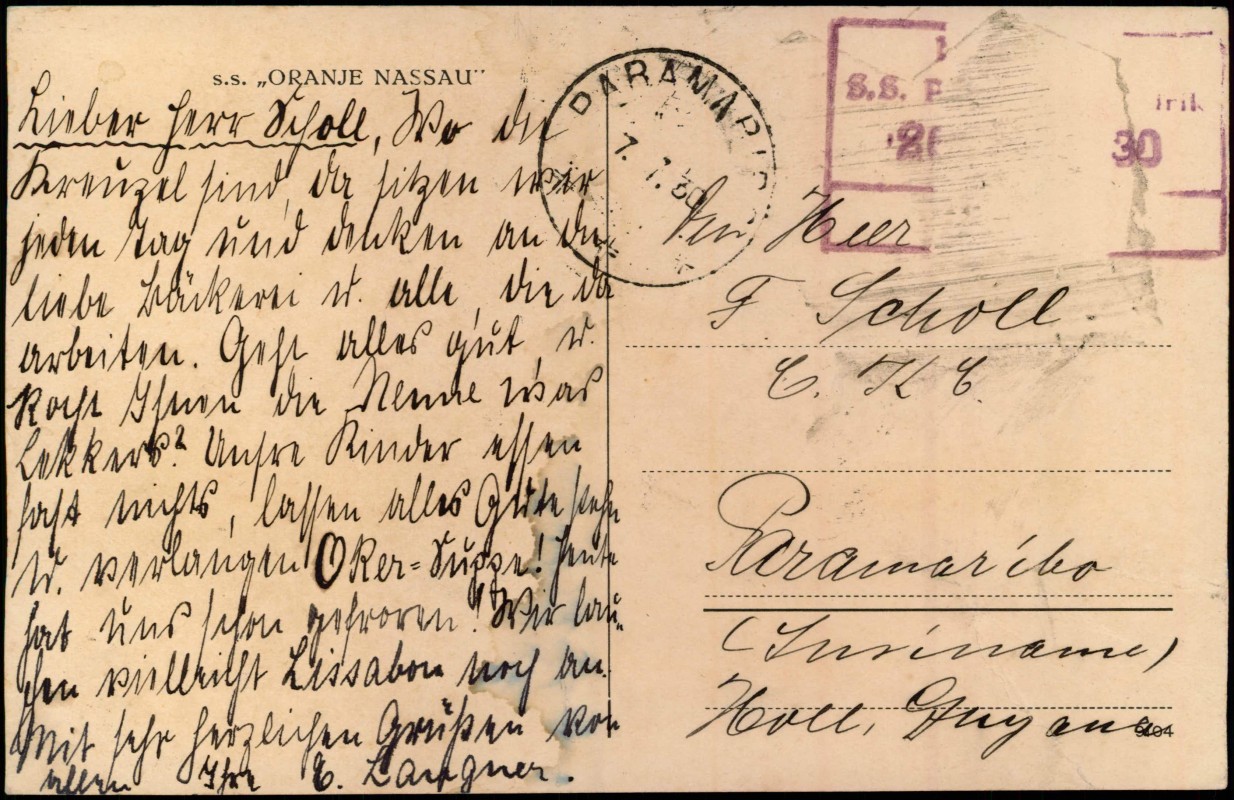 s.s. „ORANJE NASSAU"
Lieber Herr Scholl, Wo die
Kreuzel sind, da sitzen wir
jeden Tag und denken an die
liebe Bäckerei u. alle, die da
arbeiten. Geht alles gut, u.
kocht Ihnen die Nenne was
Lekkers? Unsre Kinder essen
fast nichts, lassen alles Gute stehn
u. verlangen Oker=Suppe! Heute
hat uns schon gefroren! Wir lau-
fen vielleicht Lissabon noch an.
Mit sehr herzlichen Grüßen von
allen Ihre E. Langner.
PARAMARIBO
7. 7. 30
S.S. P
30
Den Heer
F Scholl
C. K C.
Paramaribo
(Suriname)
Holl. Guyana